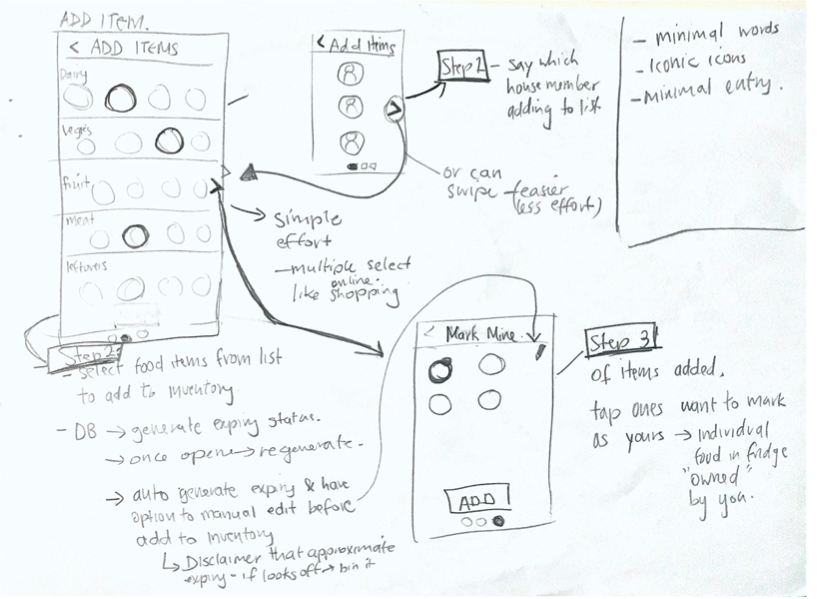 ADD ITEM.
< ADD ITEMS
Dairy
Vegies
fruit
meat
leftovers
< Add Items
Step 2 - say which
house member
adding to list
or can
swipe - easier
(less effort)
- minimal words
- Iconic icons
- Minimal entry.
simple
effort
- multiple select
like online shopping
Step 2:
- select food items from list
to add to inventory
- DB → generate expiry status.
→ once open → regenerate.
→ auto generate expiry & have
option to manual edit before
add to inventory
↳ Disclaimer that approximate
expiry - if looks off → bin it
< Mark Mine
ADD
Step 3
of items added,
tap ones want to mark
as yours → individual
food in fridge
"owned"
by you.